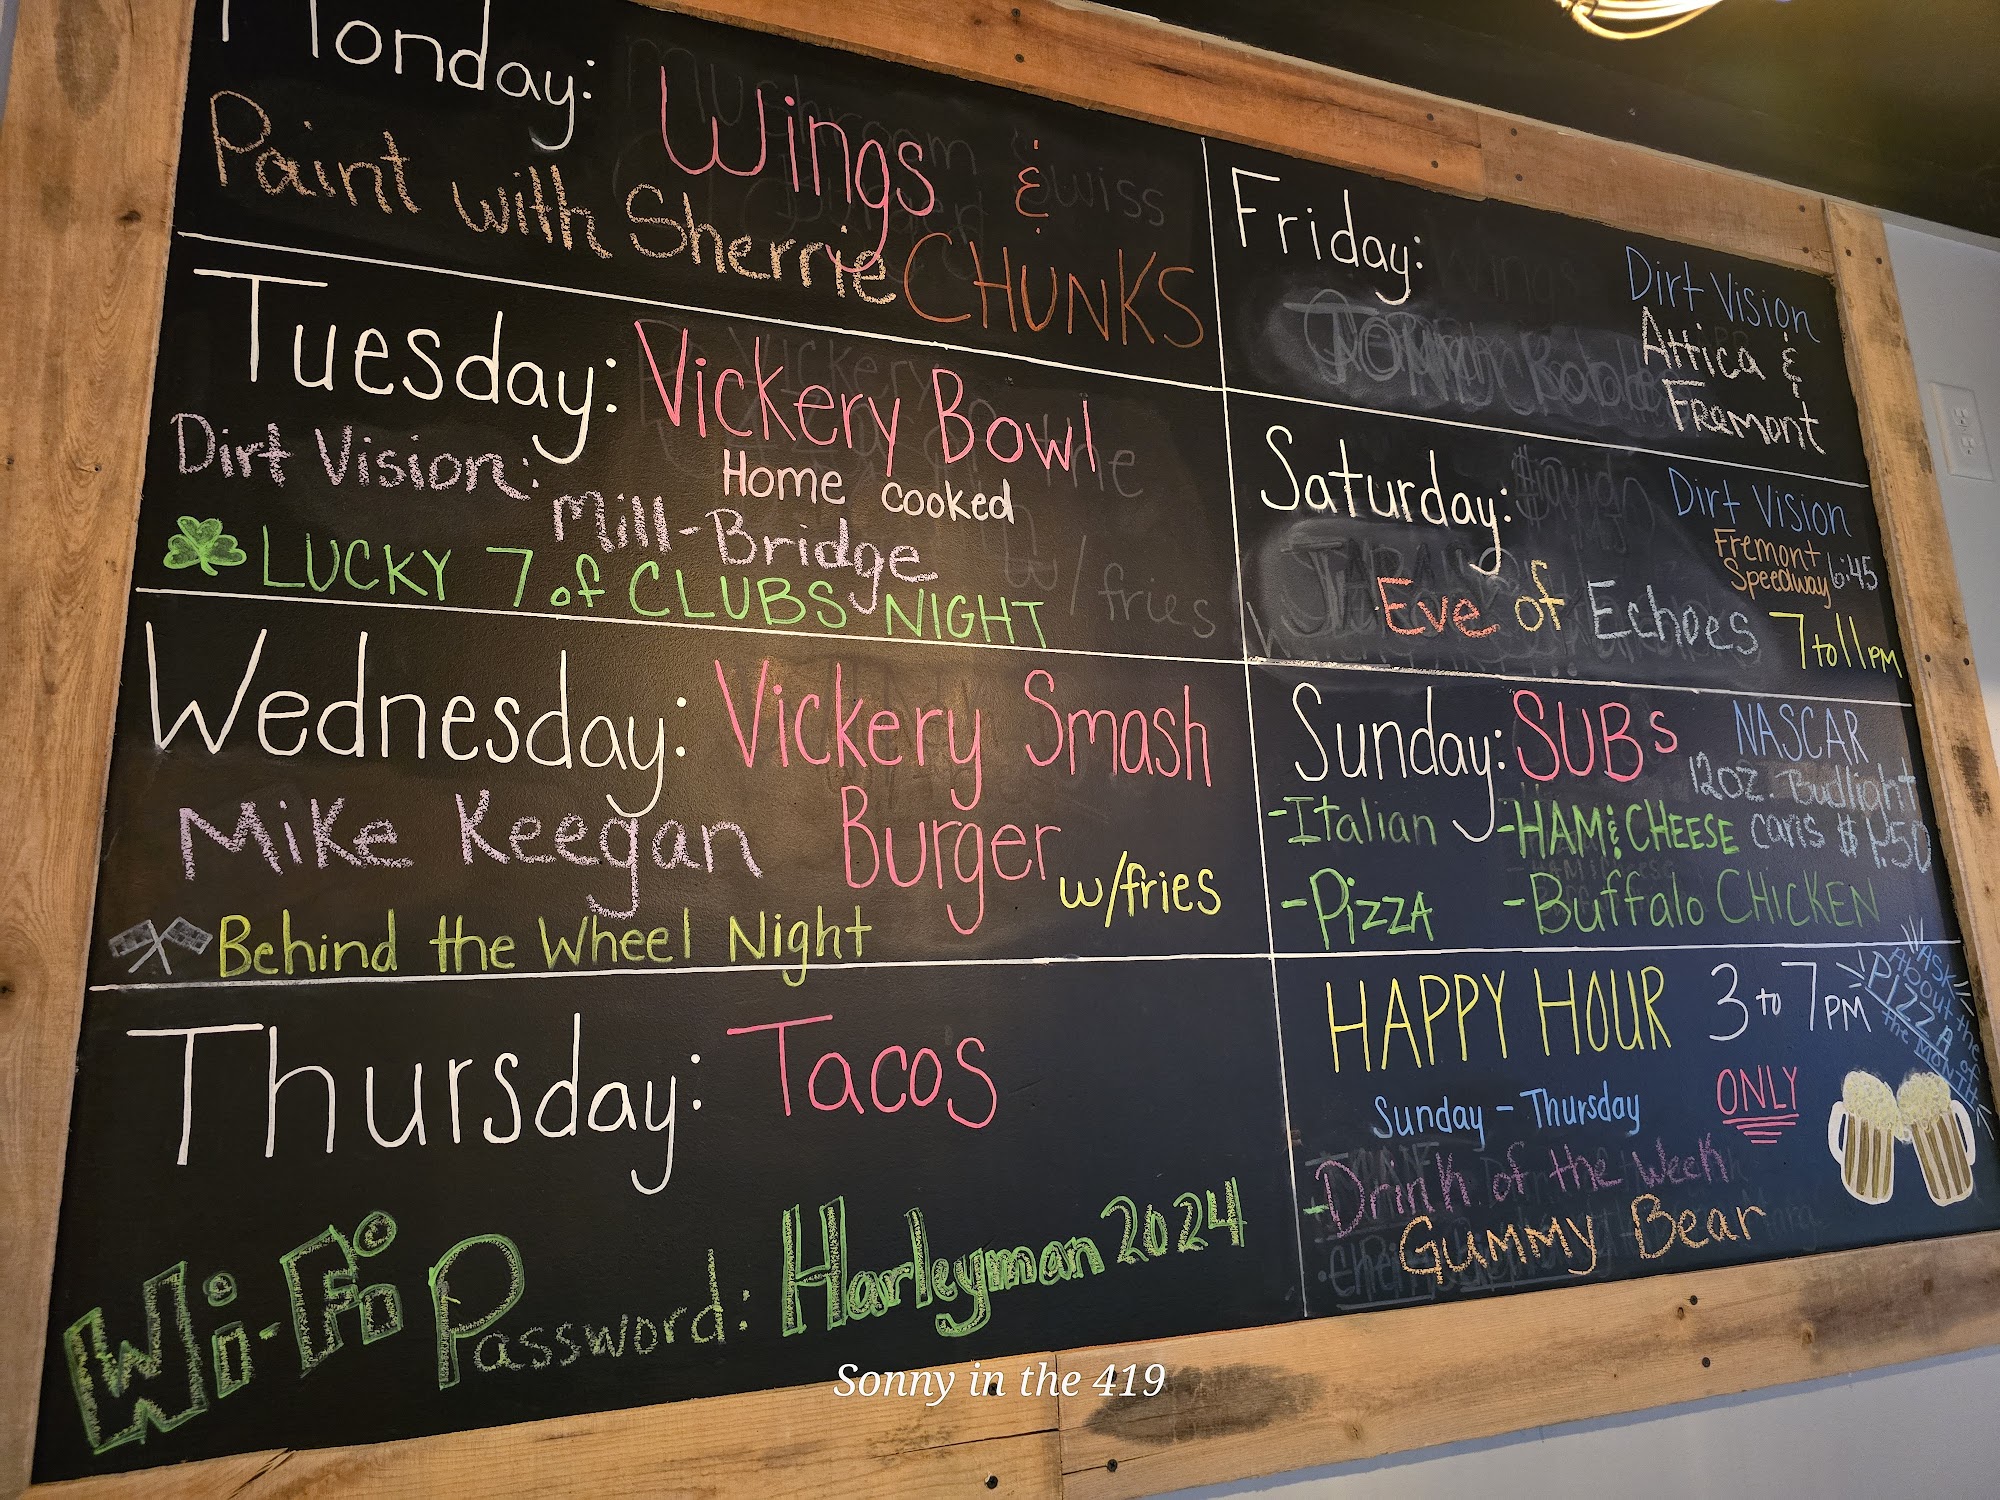 Monday: Wings &
Paint with Sherrie CHUNKS
Tuesday: Vickery Bowl
Home cooked
Dirt Vision:
Mill-Bridge
LUCKY 7 of CLUBS NIGHT
Wednesday: Vickery Smash
Burger w/fries
Mike Keegan
Behind the Wheel Night
Thursday: Tacos
Wi-Fi Password: Harleyman2024
Friday:
Dirt Vision
Attica &
Fremont
Saturday:
Dirt Vision
Fremont
Speedway 6:45
Eve of Echoes 7 to 11 PM
Sunday: SUBs
NASCAR
12oz. Budlight
cans $1.50
-Italian -HAM & CHEESE
-Pizza -Buffalo CHICKEN
HAPPY HOUR 3 to 7 PM
Sunday - Thursday ONLY
ASK
About the
PIZZA of
the MONTH
-Drink of the Week
Gummy Bear
Sonny in the 419